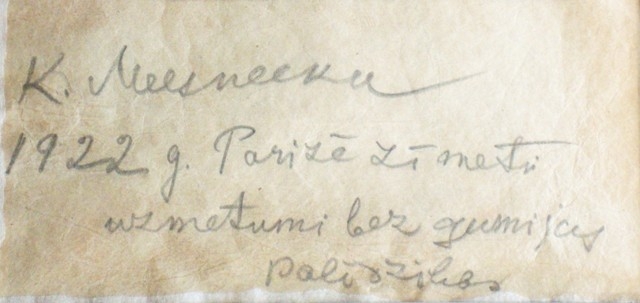 K. Meesneeku
1922 g. Parizē zīmeti
uzmetumi bez gumijas
palīdzibas